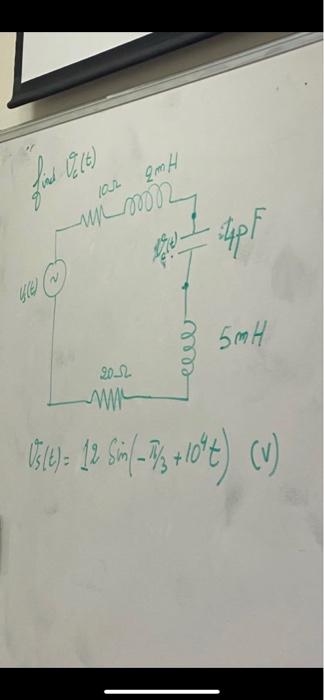 find Vc(t)
10Ω 2mH
Vs(t)
Vc(t)
4pF
5mH
20Ω
Vs(t) = 12 Sin(-π/3 + 10⁴t) (V)